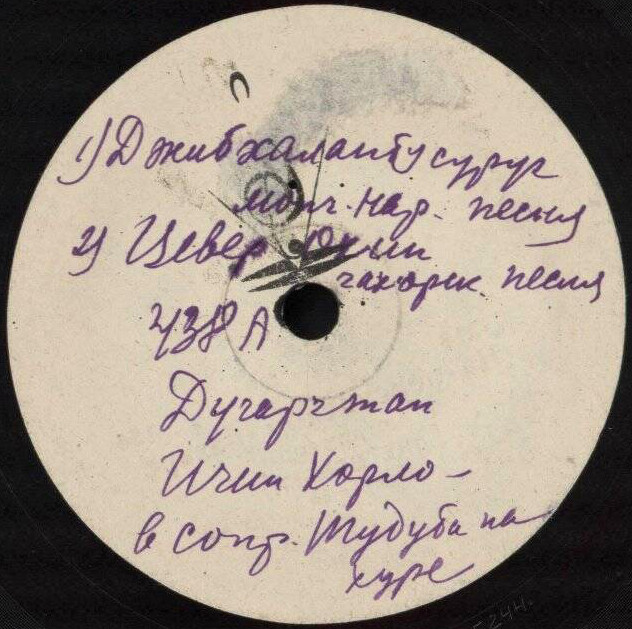 1) Джибхалантусуруг
монг. нар. песня
2) Цевер Охин
чахарск. песня
438 А
Дугарчжап
Ичин Хорло -
в сопр. Тудуба на
хуре